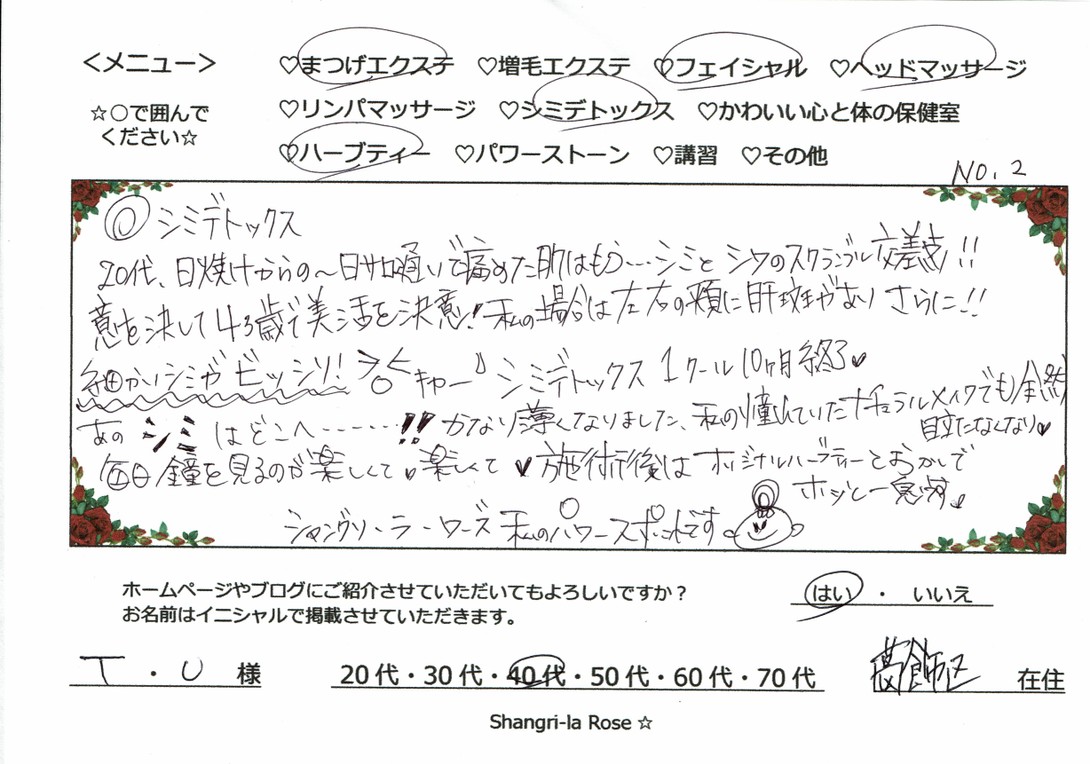 ＜メニュー＞ ♡まつげエクステ ♡増毛エクステ ♡フェイシャル ♡ヘッドマッサージ
☆○で囲んで ♡リンパマッサージ ♡シミデトックス ♡かわいい心と体の保健室
ください☆
♡ハーブティー ♡パワーストーン ♡講習 ♡その他
NO.2
◎シミデトックス
20代、日焼けからの〜日サロ通いで痛めた肌はもう…シミとシワのスクランブル交差点!!
意を決して43歳で美活を決意!私の場合は左右の頬に肝斑があり さらに!!
細かいシミがビッシリ! キャー シミデトックス 1クール10ヶ月終了♥
あの シミ はどこへ……‼ かなり薄くなりました、私の憧れていたナチュラルメイクでも全然
目立たなくなり♥
毎日鏡を見るのが楽しくて♥楽しくて♥施術後はオリジナルハーブティーとおかしで
ホッと一息です♥
シャングリ・ラ・ローズ 私のパワースポットです
ホームページやブログにご紹介させていただいてもよろしいですか？ はい ・ いいえ
お名前はイニシャルで掲載させていただきます。
T ・ U 様 20代・30代・40代・50代・60代・70代 葛飾区 在住
Shangri-la Rose☆